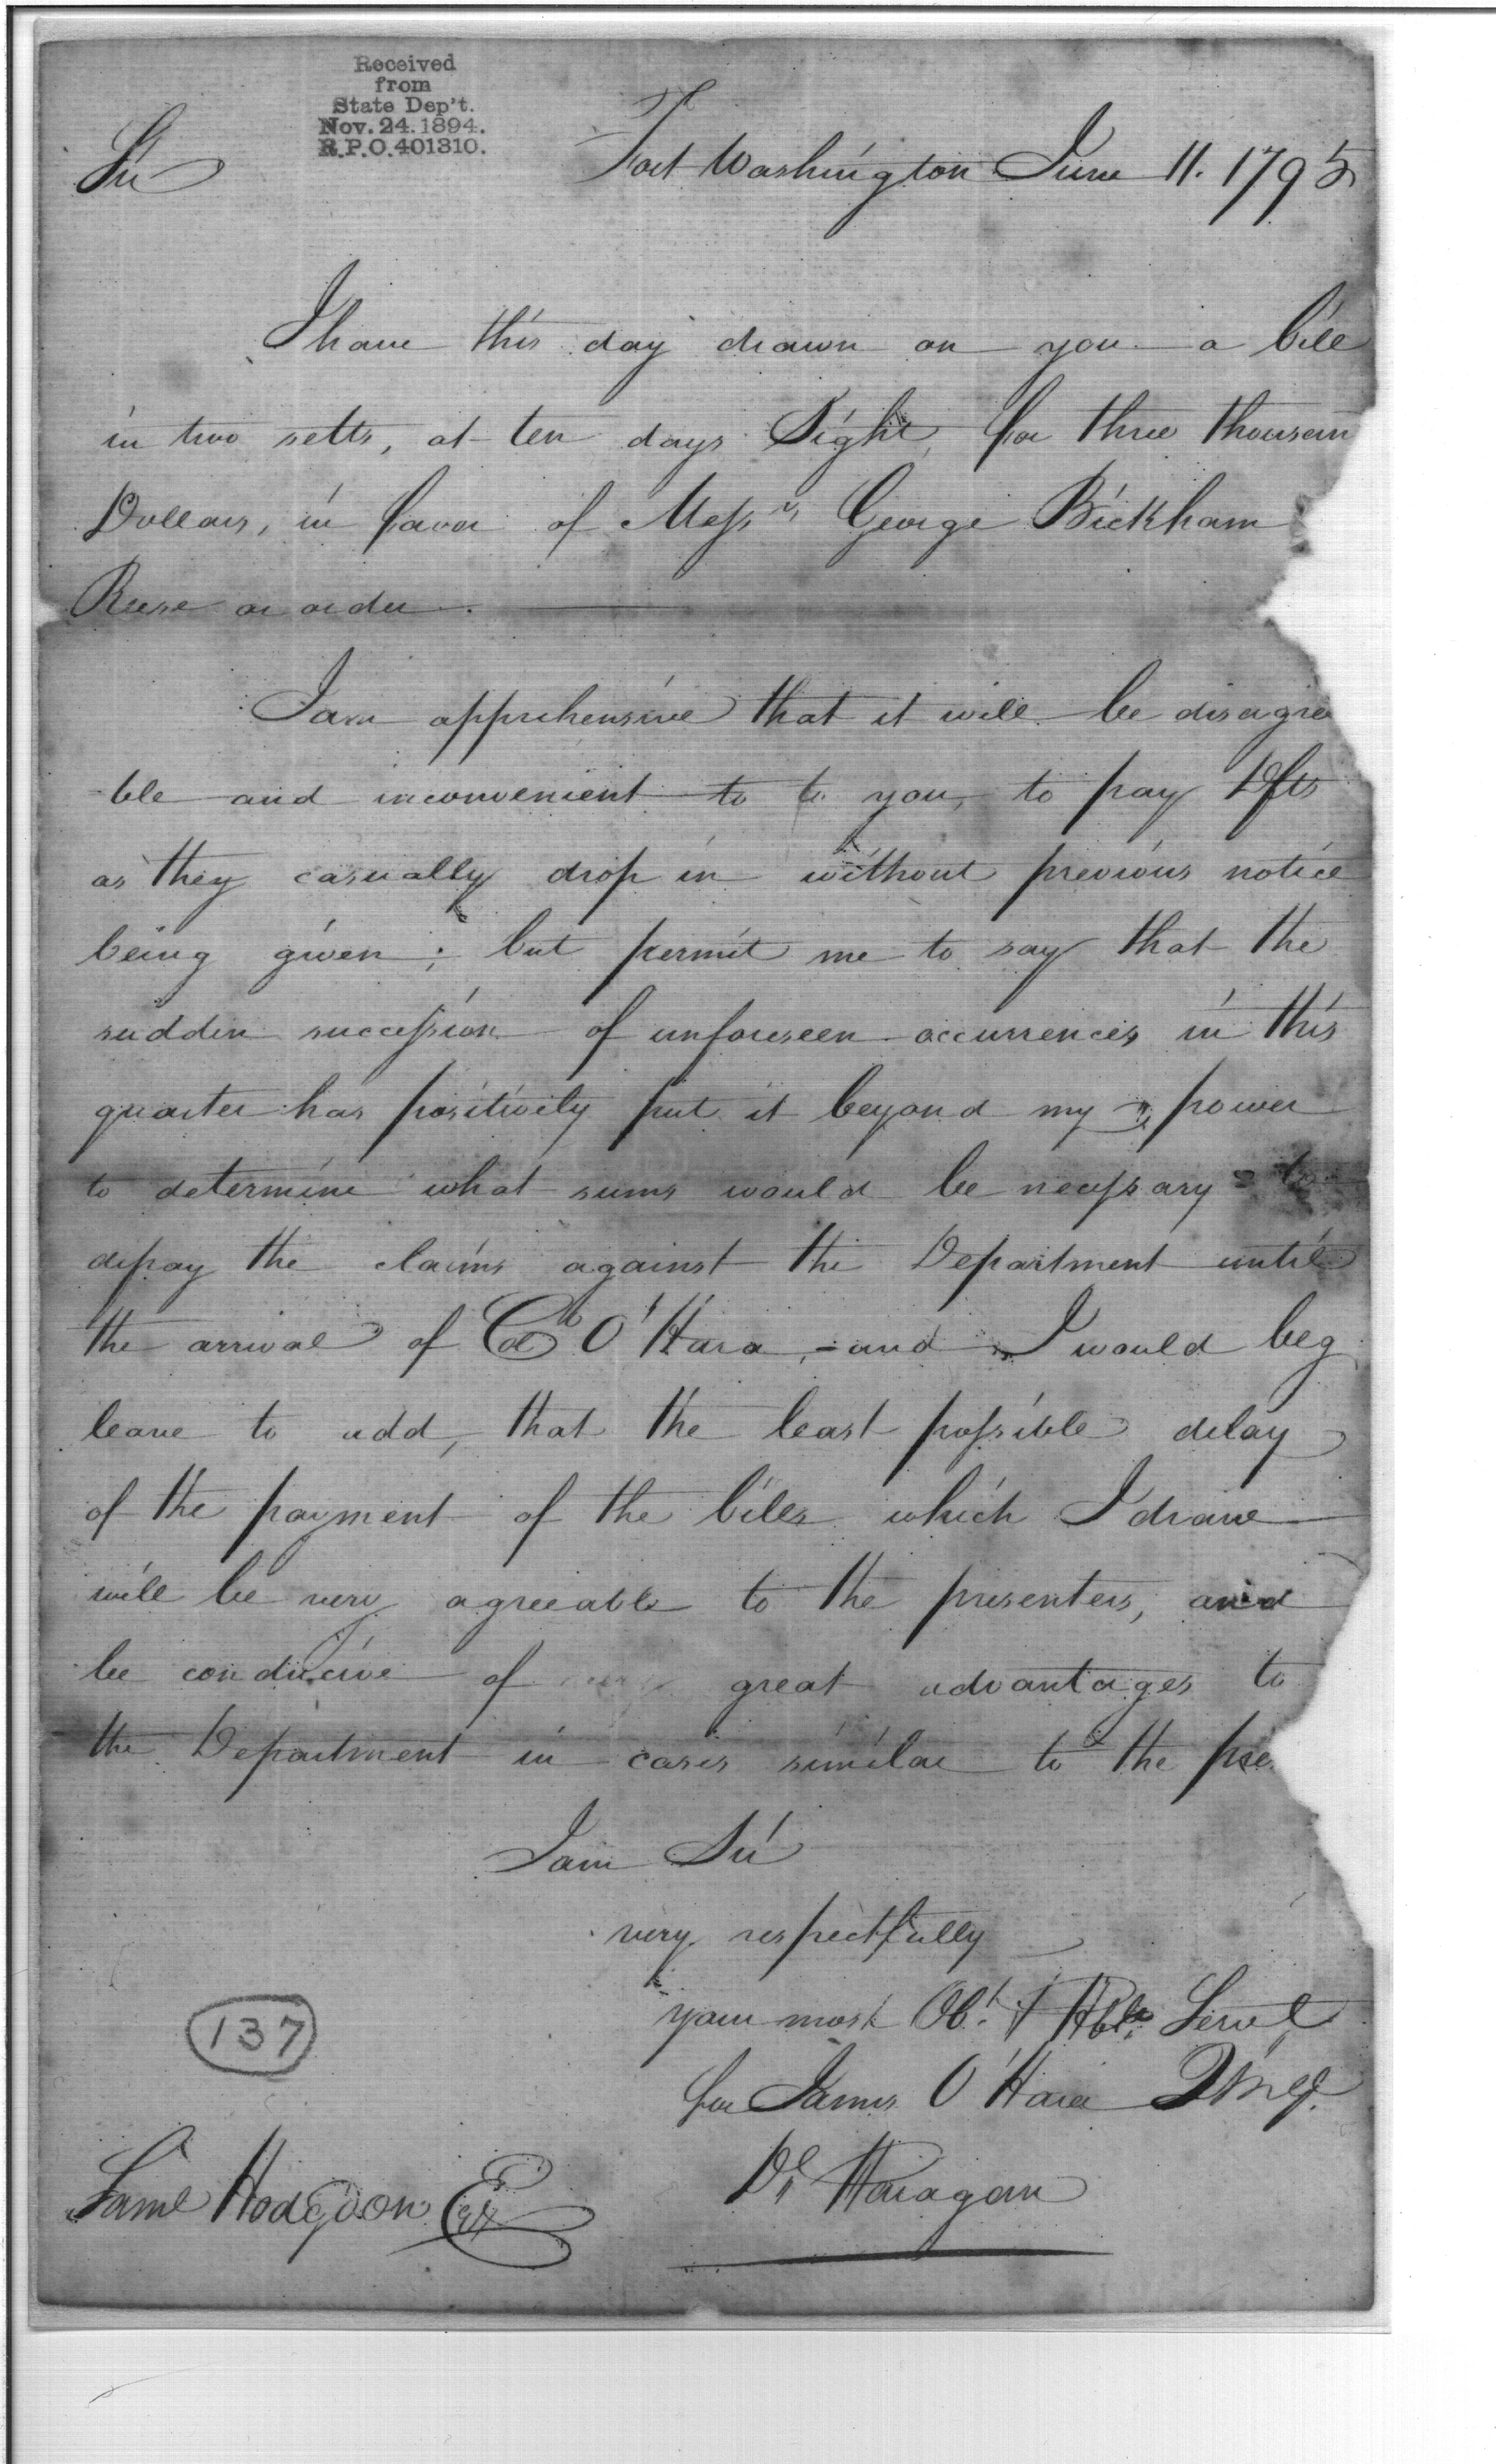 Received
from
State Dep't.
Nov. 24. 1894.
R.P.O. 401310.
Sir
Fort Washington June 11. 1795
I have this day drawn on you a bill
in two setts, at ten days Sight, for three thousan
Dollars, in favor of Messrs George Bickham
Reese or order.
I am apprehensive that it will be disagre
-ble and inconvenient to to you, to pay Dfts
as they casually drop in without previous notice
being given; but permit me to say that the
sudden succession of unforeseen occurrences in this
quarter has positively put it beyond my power
to determine what sums would be necessary to
defray the claims against the Department until
the arrival of Col O'Hara, - and I would beg
leave to add, that the least possible delay
of the payment of the bills which I draw
will be very agreeable to the presenters, and
be conducive of great advantages to
the Department in cases similar to the pre
I am Sir
very respectfully
your most Obt. & Hble. Servt
for James O'Hara QMG.
Dl Haragan
137
Saml Hodgdon Esq